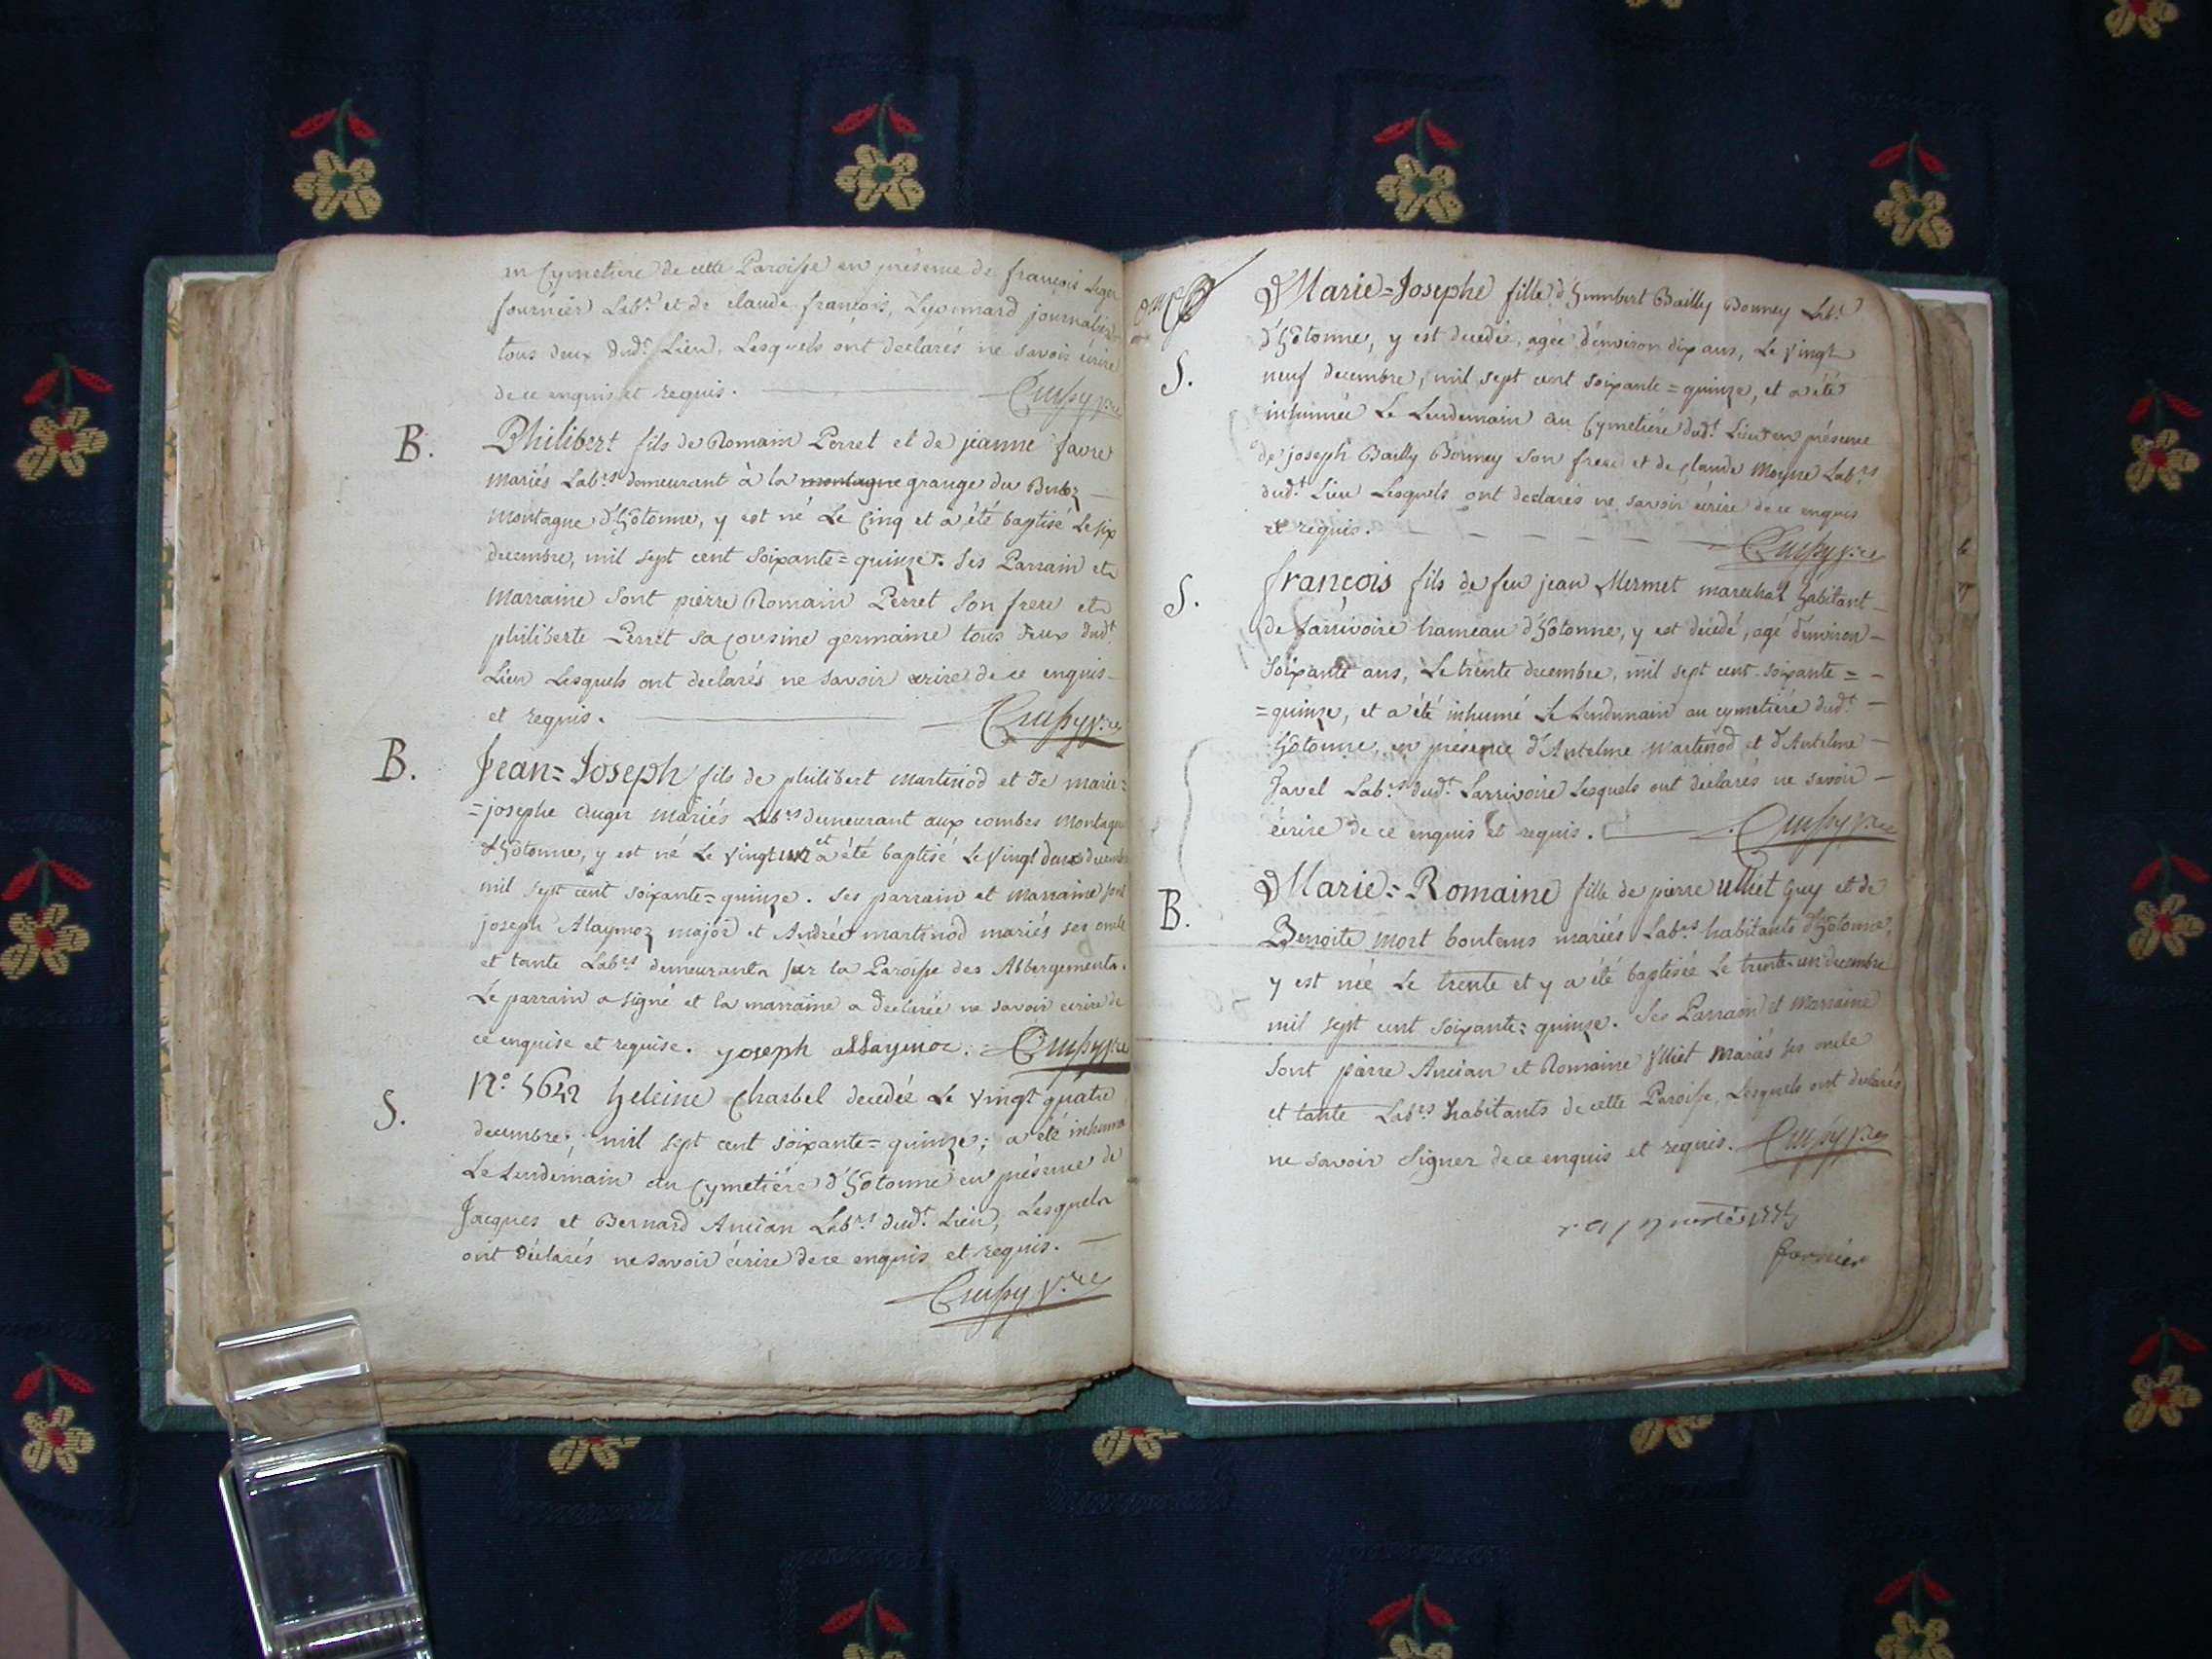 en Cymetiere de cette Paroisse en présence de françois Leger
fournier Lab.r et de claude françois, Lyonnard journalier
tous deux dud.t Lieu, Lesquels ont declarés ne savoir écrire
de ce enquis et requis.
B. Philibert fils de Romain Perret et de jeanne favre
mariés Lab.rs demeurant à la montagne grange du
montagne d'hotonne, y est né Le Cinq et a été baptisé Le six
decembre, mil sept cent soixante=quinze. Ses Parrain et
Marraine sont pierre Romain Perret son frere et
philiberte Perret sa cousine germaine tous deux dud.t
Lieu Lesquels ont declarés ne savoir ecrire de ce enquis
et requis.
B. Jean=Joseph fils de philibert martinod et de marie=
=josephe mariés Lab.rs demeurant aux combes montagne
d'hotonne, y est né Le vingt un et a été baptisé Le vingt deux decembre
mil sept cent soixante=quinze. ses parrain et marraine sont
joseph Alaymoz major et Andrée martinod mariés ses oncle
et tante Lab.rs demeurants sur la Paroisse des Abbergements.
Le parrain a signé et la marraine a declarée ne savoir ecrire de
ce enquise et requise. joseph allaymoz.
S. N.o heleine Charbel decedée Le vingt quatre
decembre, mil sept cent soixante=quinze; a été inhumée
Le Lendemain au Cymetiére d'hotonne en présence de
Jacques et Bernard Ancian Lab.rs dud.t Lieu, Lesquels
ont déclarés ne savoir écrire de ce enquis et requis.
Marie=Josephe fille d'humbert Bailly Bonney Lab.r
d'hotonne, y est decedée, agée d'environ dix ans, Le vingt
S. neuf decembre, mil sept cent soixante=quinze, et a été
inhumée Le Lendemain au Cymetiére dud.t Lieu en présence
de joseph Bailly Bonney son frere et de claude moyne Lab.rs
dud.t Lieu Lesquels ont declarés ne savoir écrire de ce enquis
et requis.
S. françois fils de feu jean Mermet marechal habitant
de Larrivoire hameau d'hotonne, y est décédé, agé d'environ
soixante ans, Le trente decembre, mil sept cent soixante=
=quinze, et a été inhumé Le Lendemain au cymetiére dud.t
hotonne, en présence d'Antelme martinod et d'Antelme
Javel Lab.rs dud.t Larrivoire Lesquels ont déclarés ne savoir
écrire de ce enquis et requis.
B. Marie=Romaine fille de pierre ulliet Guy et de
Benoite mort bontems mariés Lab.rs habitants d'hotonne,
y est née Le trente et y a été baptisée Le trente-un decembre
mil sept cent soixante=quinze. Ses Parrain et Marraine
sont pierre Ancian et Romaine Ulliet Mariés ses oncle
et tante Lab.rs habitants de cette Paroisse, Lesquels ont declarés
ne savoir signer de ce enquis et requis.